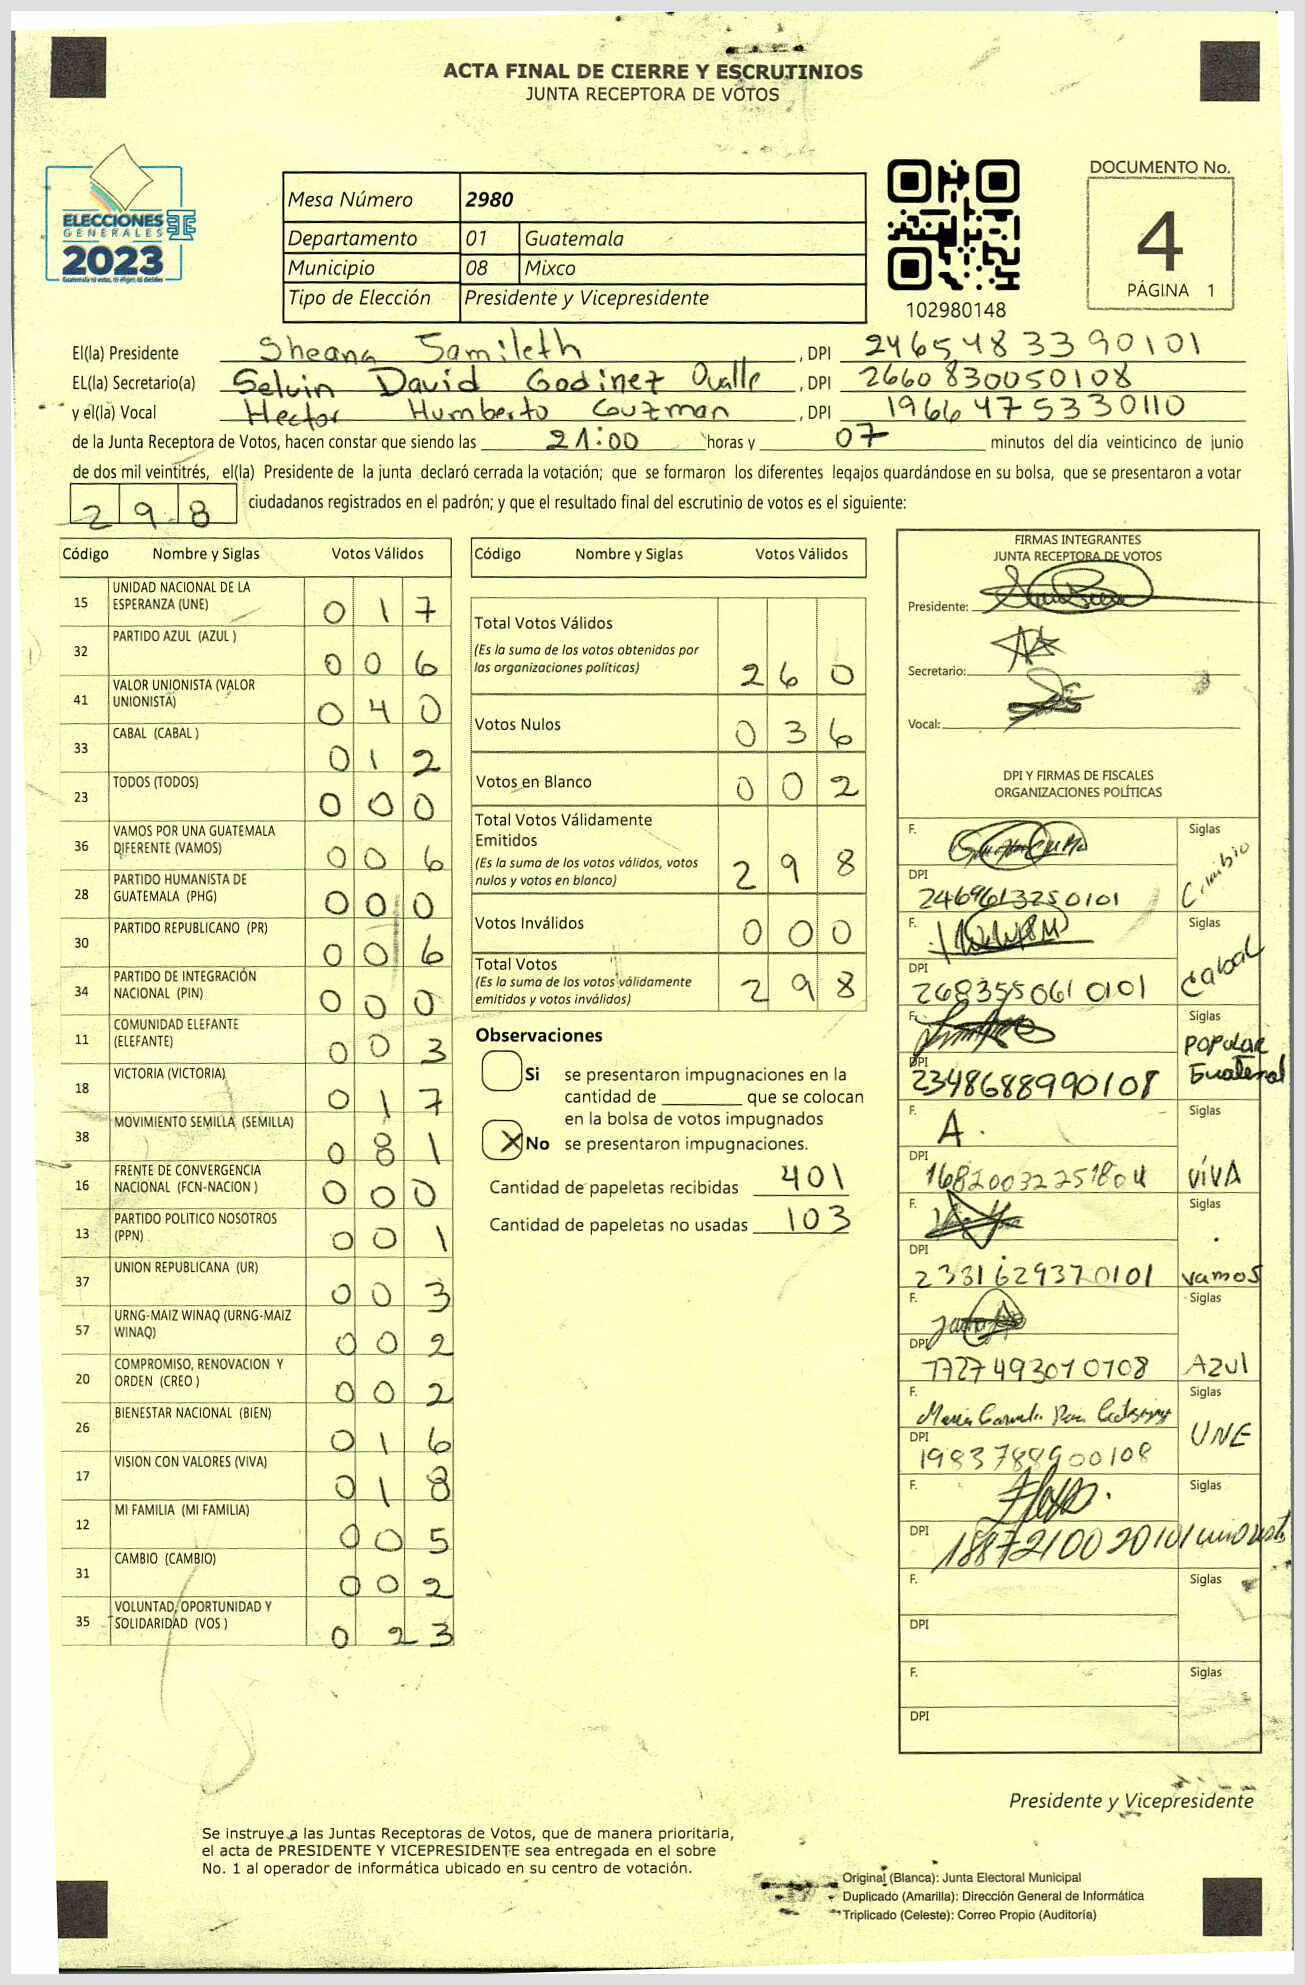 ACTA FINAL DE CIERRE Y ESCRUTINIOS
JUNTA RECEPTORA DE VOTOS
ELECCIONES
GENERALES
2023
Guatemala
Mesa Número 2980
Departamento 01 Guatemala
Municipio 08 Mixco
Tipo de Elección Presidente y Vicepresidente
102980148
DOCUMENTO No.
4
PÁGINA 1
El(la) Presidente Sheana Samileth , DPI 2465483390101
EL(la) Secretario(a) Selvin David Godinez Ovalle , DPI 2660830050108
y el(la) Vocal Hector Humberto Guzman , DPI 1966475330110
de la Junta Receptora de Votos, hacen constar que siendo las 21:00 horas y 07 minutos del día veinticinco de junio
de dos mil veintitrés, el(la) Presidente de la junta declaró cerrada la votación; que se formaron los diferentes legajos guardándose en su bolsa, que se presentaron a votar
298 ciudadanos registrados en el padrón; y que el resultado final del escrutinio de votos es el siguiente:
Código Nombre y Siglas Votos Válidos
15 UNIDAD NACIONAL DE LA ESPERANZA (UNE) 017
32 PARTIDO AZUL (AZUL ) 006
41 VALOR UNIONISTA (VALOR UNIONISTA) 040
33 CABAL (CABAL ) 012
23 TODOS (TODOS) 000
36 VAMOS POR UNA GUATEMALA DIFERENTE (VAMOS) 006
28 PARTIDO HUMANISTA DE GUATEMALA (PHG) 000
30 PARTIDO REPUBLICANO (PR) 006
34 PARTIDO DE INTEGRACIÓN NACIONAL (PIN) 000
11 COMUNIDAD ELEFANTE (ELEFANTE) 003
18 VICTORIA (VICTORIA) 017
38 MOVIMIENTO SEMILLA (SEMILLA) 081
16 FRENTE DE CONVERGENCIA NACIONAL (FCN-NACION ) 000
13 PARTIDO POLITICO NOSOTROS (PPN) 001
37 UNION REPUBLICANA (UR) 003
57 URNG-MAIZ WINAQ (URNG-MAIZ WINAQ) 002
20 COMPROMISO, RENOVACION Y ORDEN (CREO ) 002
26 BIENESTAR NACIONAL (BIEN) 016
17 VISION CON VALORES (VIVA) 018
12 MI FAMILIA (MI FAMILIA) 005
31 CAMBIO (CAMBIO) 002
35 VOLUNTAD, OPORTUNIDAD Y SOLIDARIDAD (VOS ) 023
Código Nombre y Siglas Votos Válidos
Total Votos Válidos 260
(Es la suma de los votos obtenidos por
las organizaciones políticas)
Votos Nulos 036
Votos en Blanco 002
Total Votos Válidamente
Emitidos 298
(Es la suma de los votos válidos, votos
nulos y votos en blanco)
Votos Inválidos 000
Total Votos 298
(Es la suma de los votos válidamente
emitidos y votos inválidos)
Observaciones
Si se presentaron impugnaciones en la
cantidad de ________ que se colocan
en la bolsa de votos impugnados
X No se presentaron impugnaciones.
Cantidad de papeletas recibidas 401
Cantidad de papeletas no usadas 103
FIRMAS INTEGRANTES
JUNTA RECEPTORA DE VOTOS
Presidente:
Secretario:
Vocal:
DPI Y FIRMAS DE FISCALES
ORGANIZACIONES POLÍTICAS
F. Siglas
DPI 2469613250101
F. Siglas Cabal
DPI 2683550610101
F. Siglas POPULAR
DPI 2348688990108
F. A. Siglas VIVA
DPI 16820032251804
F. Siglas vamos
DPI 2331629370101
F. Siglas AZUL
DPI 1727493010108
F. Siglas UNE
DPI 1983788900108
F. Siglas
DPI 1887210020101
F. Siglas
DPI
F. Siglas
DPI
Presidente y Vicepresidente
Se instruye a las Juntas Receptoras de Votos, que de manera prioritaria,
el acta de PRESIDENTE Y VICEPRESIDENTE sea entregada en el sobre
No. 1 al operador de informática ubicado en su centro de votación.
Original (Blanca): Junta Electoral Municipal
Duplicado (Amarilla): Dirección General de Informática
Triplicado (Celeste): Correo Propio (Auditoría)